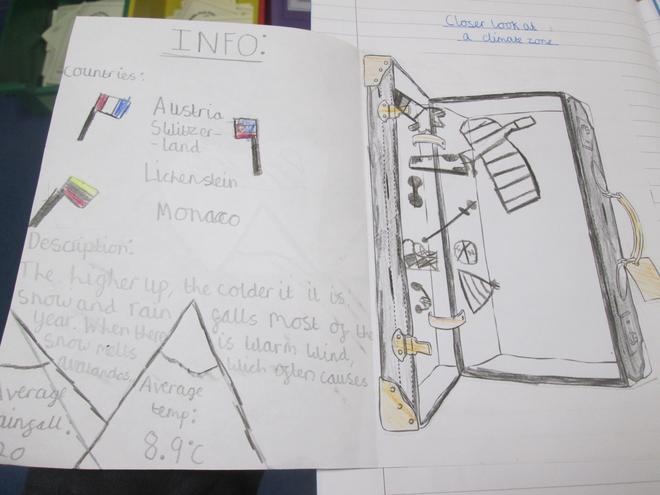 INFO:
Countries:
Austria
Switzer-
-land
Lichenstein
Monaco
Description:
The higher up, the colder it it is,
snow and rain falls most of the
year. When there is warm wind,
snow melts which often causes
avalanches
Average
rainfall:
20
Average
temp:
8.9°C
Closer look at
a climate zone